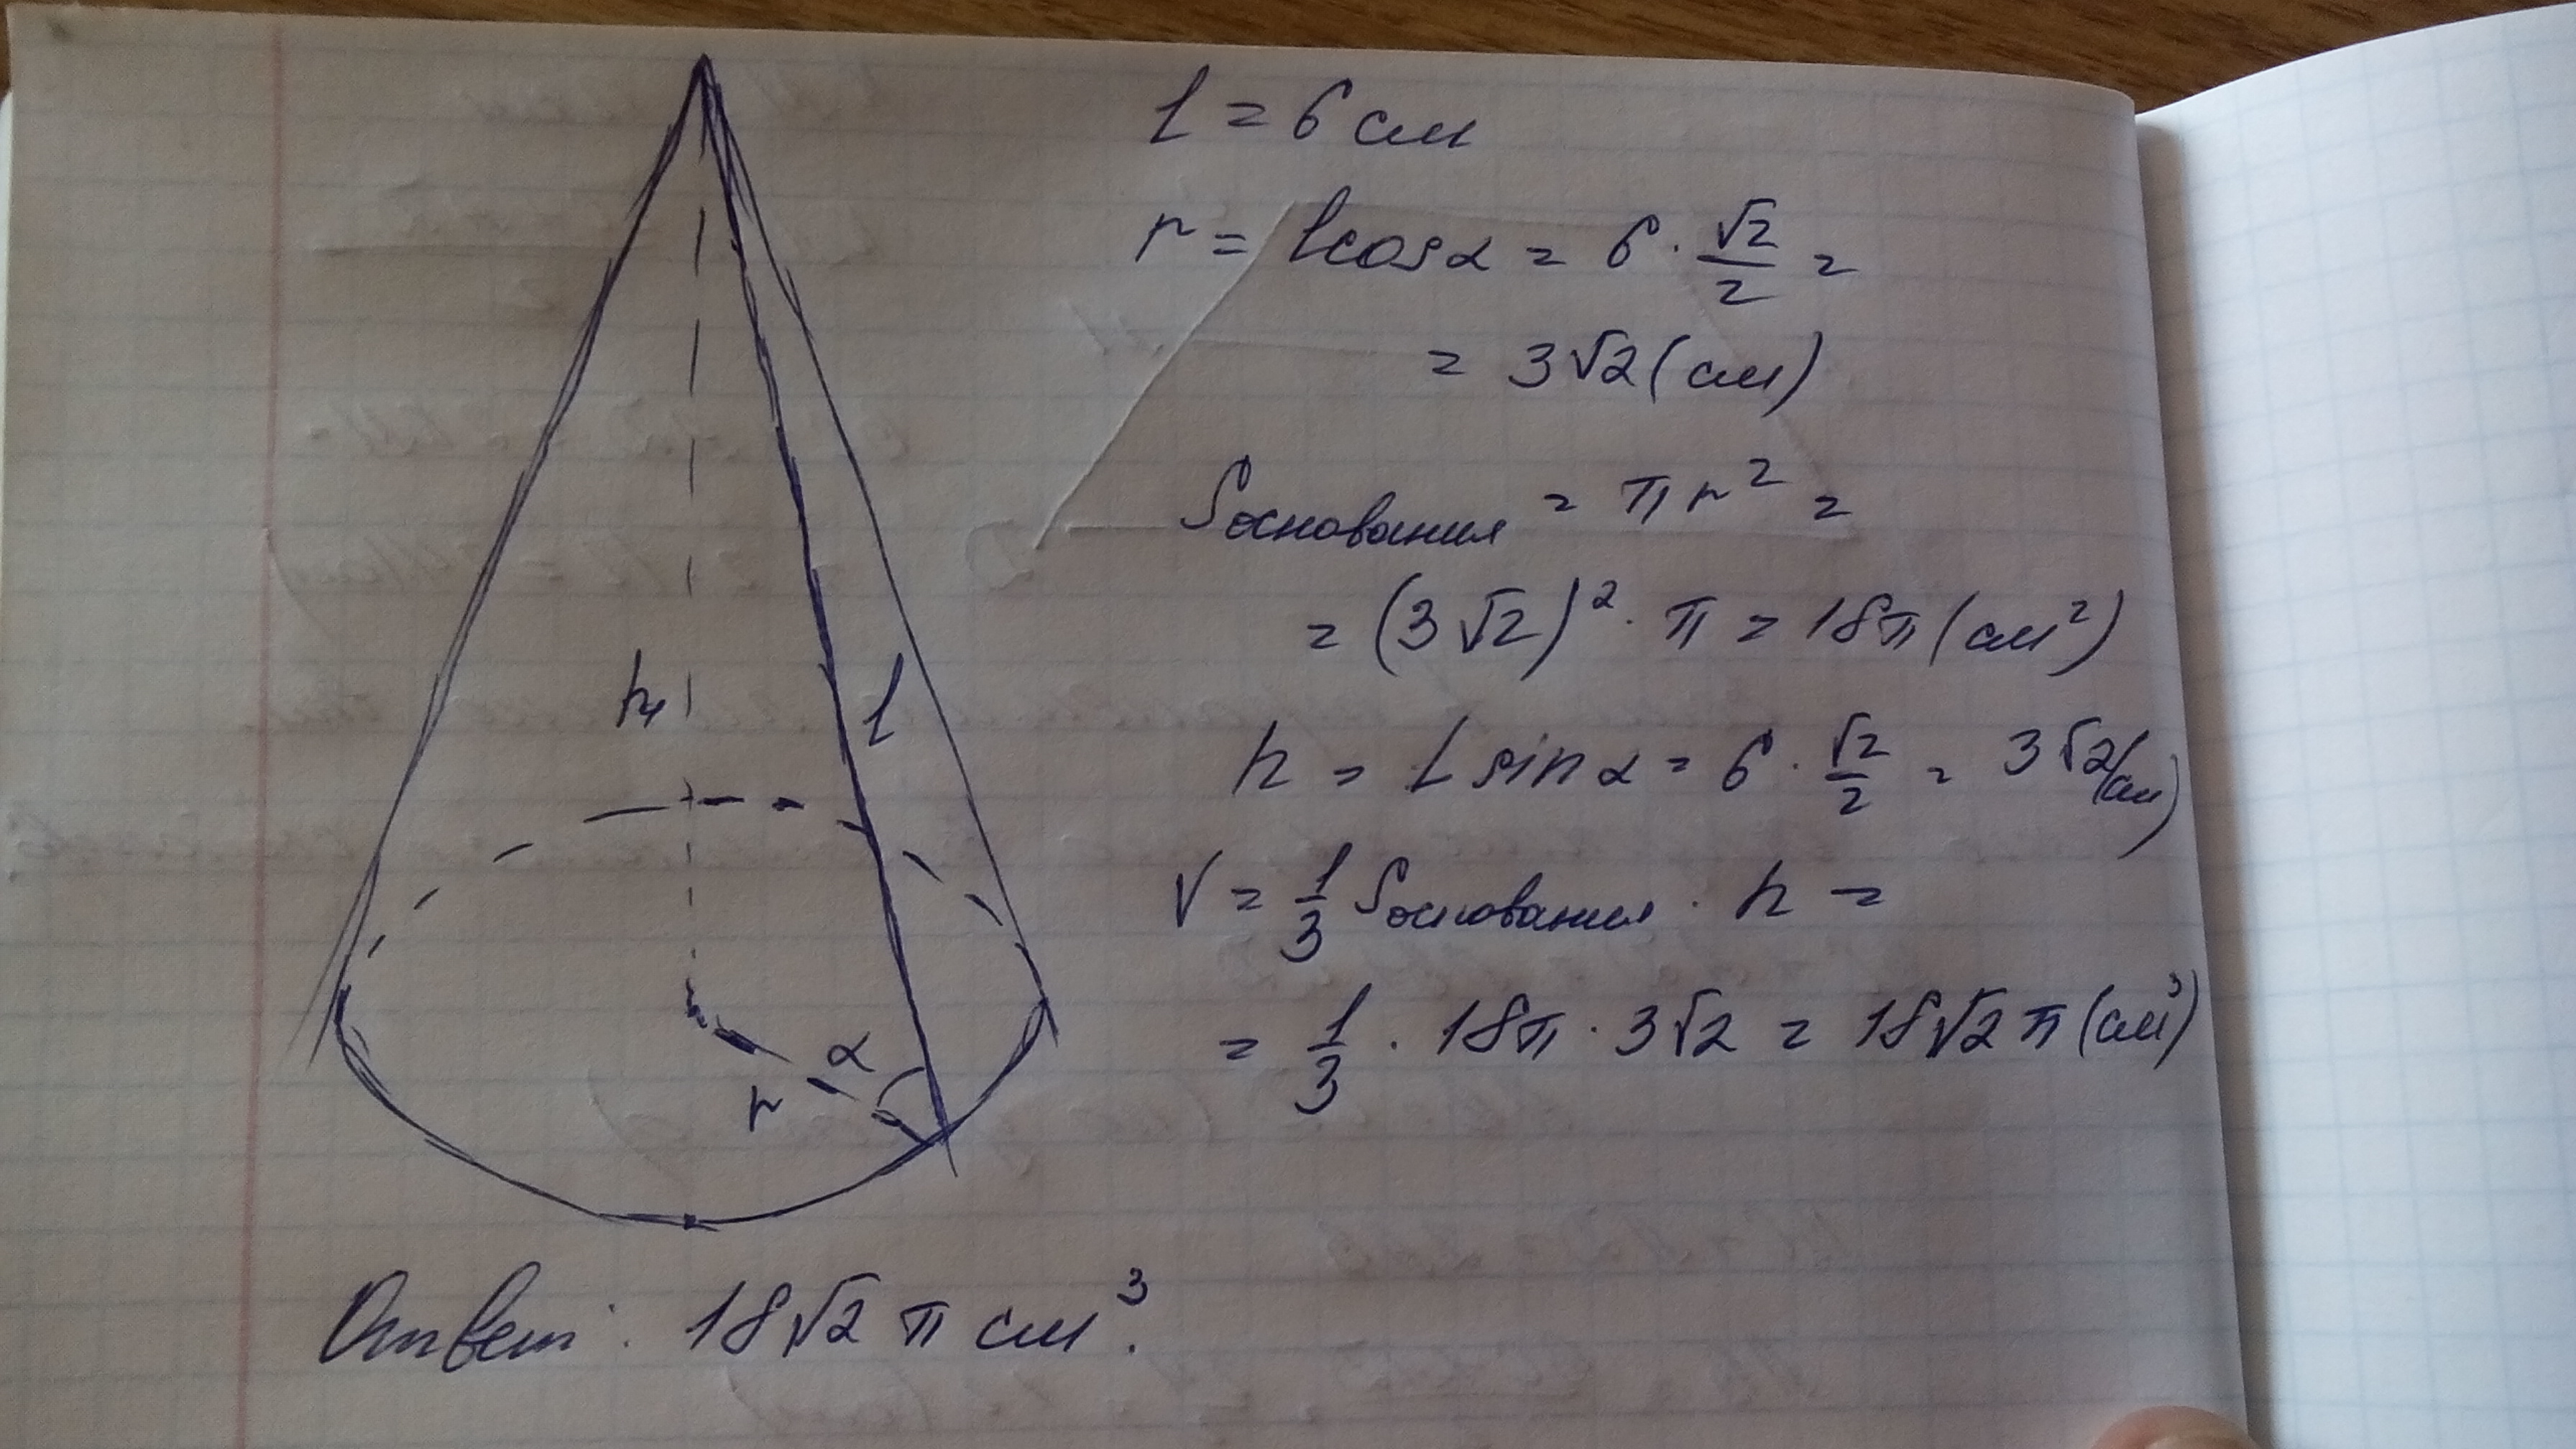 l = 6 см
r = l cos α = 6 · √2/2 =
= 3√2 (см)
Sоснования = πr² =
= (3√2)² · π = 18π (см²)
h = l sin α = 6 · √2/2 = 3√2 (см)
V = 1/3 Sоснования · h =
= 1/3 · 18π · 3√2 = 18√2 π (см³)
h
l
α
r
Ответ: 18√2 π см³.